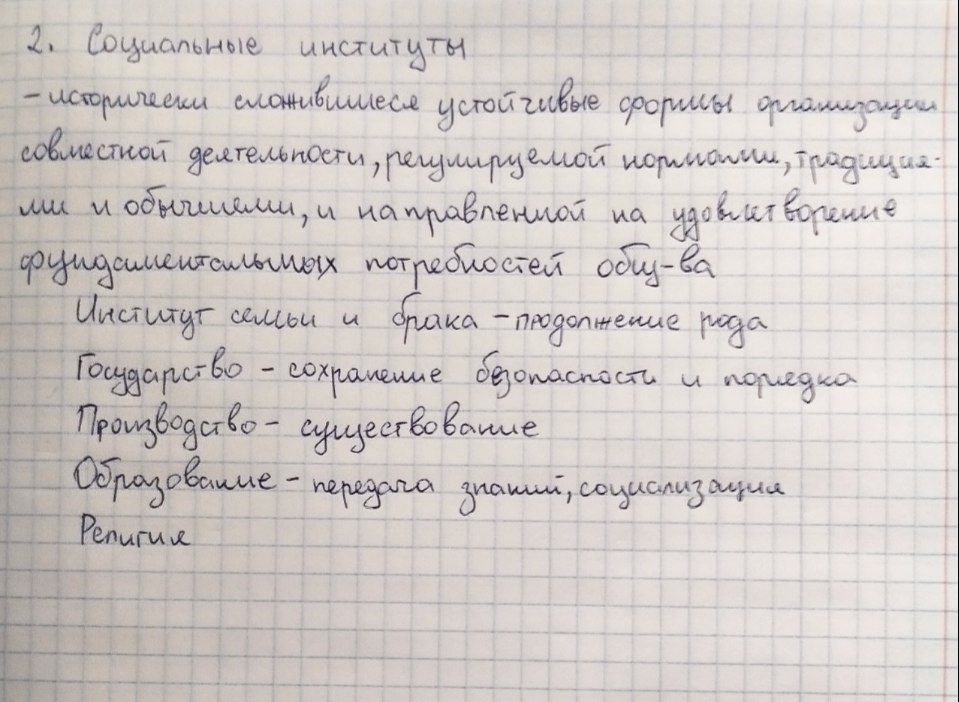 2. Социальные институты
- исторически сложившиеся устойчивые формы организации
совместной деятельности, регулируемой нормами, традиция-
ми и обычаями, и направленной на удовлетворение
фундаментальных потребностей общ-ва
Институт семьи и брака - продолжение рода
Государство - сохранение безопасности и порядка
Производство - существование
Образование - передача знаний, социализация
Религия